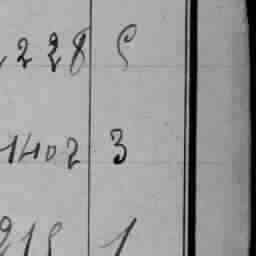 228 5
1402 3
215 1